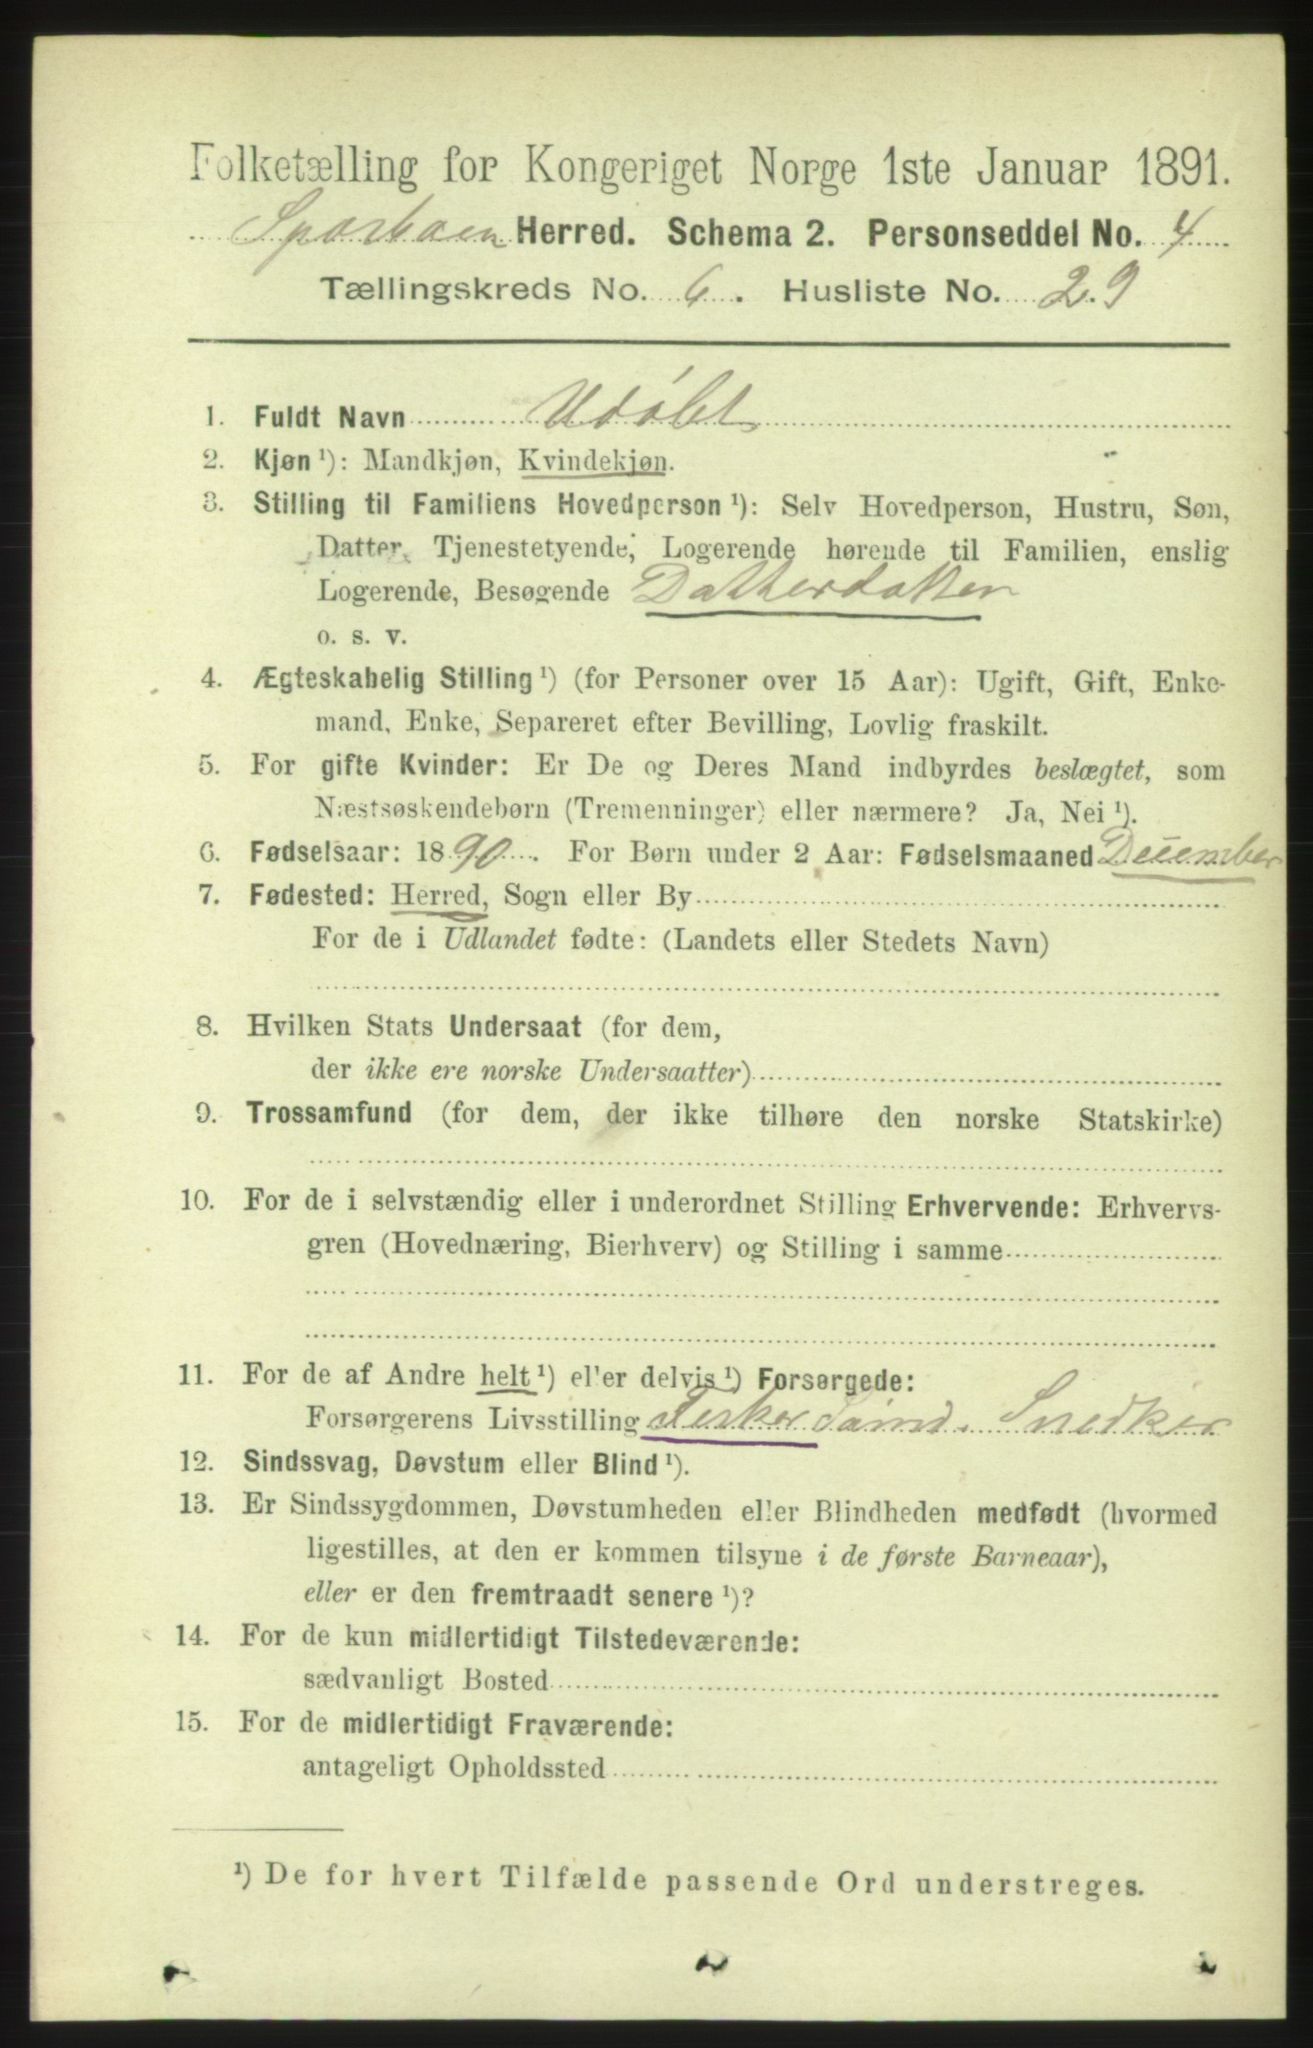 Folketælling for Kongeriget Norge 1ste Januar 1891.
Sparbuen Herred. Schema 2. Personseddel No. 4
Tællingskreds No. 6. Husliste No. 29
1. Fuldt Navn Udöbt
2. Kjøn ¹): Mandkjøn, Kvindekjøn.
3. Stilling til Familiens Hovedperson ¹): Selv Hovedperson, Hustru, Søn,
Datter, Tjenestetyende, Logerende hørende til Familien, enslig
Logerende, Besøgende Datterdatter
o. s. v.
4. Ægteskabelig Stilling ¹) (for Personer over 15 Aar): Ugift, Gift, Enke-
mand, Enke, Separeret efter Bevilling, Lovlig fraskilt.
5. For gifte Kvinder: Er De og Deres Mand indbyrdes beslægtet, som
Næstsøskendebørn (Tremenninger) eller nærmere? Ja, Nei ¹).
6. Fødselsaar: 1890. For Børn under 2 Aar: Fødselsmaaned December
7. Fødested: Herred, Sogn eller By
For de i Udlandet fødte: (Landets eller Stedets Navn)
8. Hvilken Stats Undersaat (for dem,
der ikke ere norske Undersaatter)
9. Trossamfund (for dem, der ikke tilhøre den norske Statskirke)
10. For de i selvstændig eller i underordnet Stilling Erhvervende: Erhvervs-
gren (Hovednæring, Bierhverv) og Stilling i samme
11. For de af Andre helt ¹) eller delvis ¹) Forsørgede:
Forsørgerens Livsstilling Snedker
12. Sindssvag, Døvstum eller Blind ¹).
13. Er Sindssygdommen, Døvstumheden eller Blindheden medfødt (hvormed
ligestilles, at den er kommen tilsyne i de første Barneaar),
eller er den fremtraadt senere ¹)?
14. For de kun midlertidigt Tilstedeværende:
sædvanligt Bosted
15. For de midlertidigt Fraværende:
antageligt Opholdssted
¹) De for hvert Tilfælde passende Ord understreges.